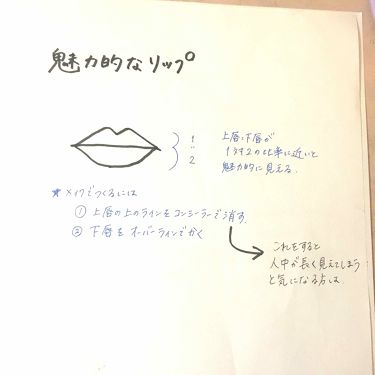 魅力的なリップ
1
:
2
上唇:下唇が
1対2の比率に近いと
魅力的に見える。
★メイクでつくるには
① 上唇の上のラインをコンシーラーで消す。
② 下唇をオーバーラインでかく
これをすると
人中が長く見えてしまう
と気になる方は